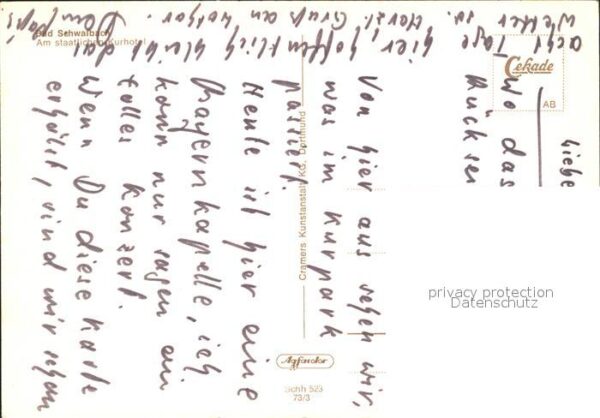 Bad Schwalbach
Am staatlichen Kurhotel
Cekade
AB
Cramers Kunstanstalt KG, Dortmund
Agfacolor
Schh 523
73/3
privacy protection
Datenschutz
Liebe
Rücksei
Wo das
Von hier aus sehen wir,
was im Kurpark
passiert.
Heute ist hier eine
Bayernkapelle, ich
kann nur sagen ein
tolles Konzert.
Wenn Du diese Karte
erhälst, sind wir schon
acht Tage hier, hoffentlich bleibt das
Wetter so. Herzl. Gruß an